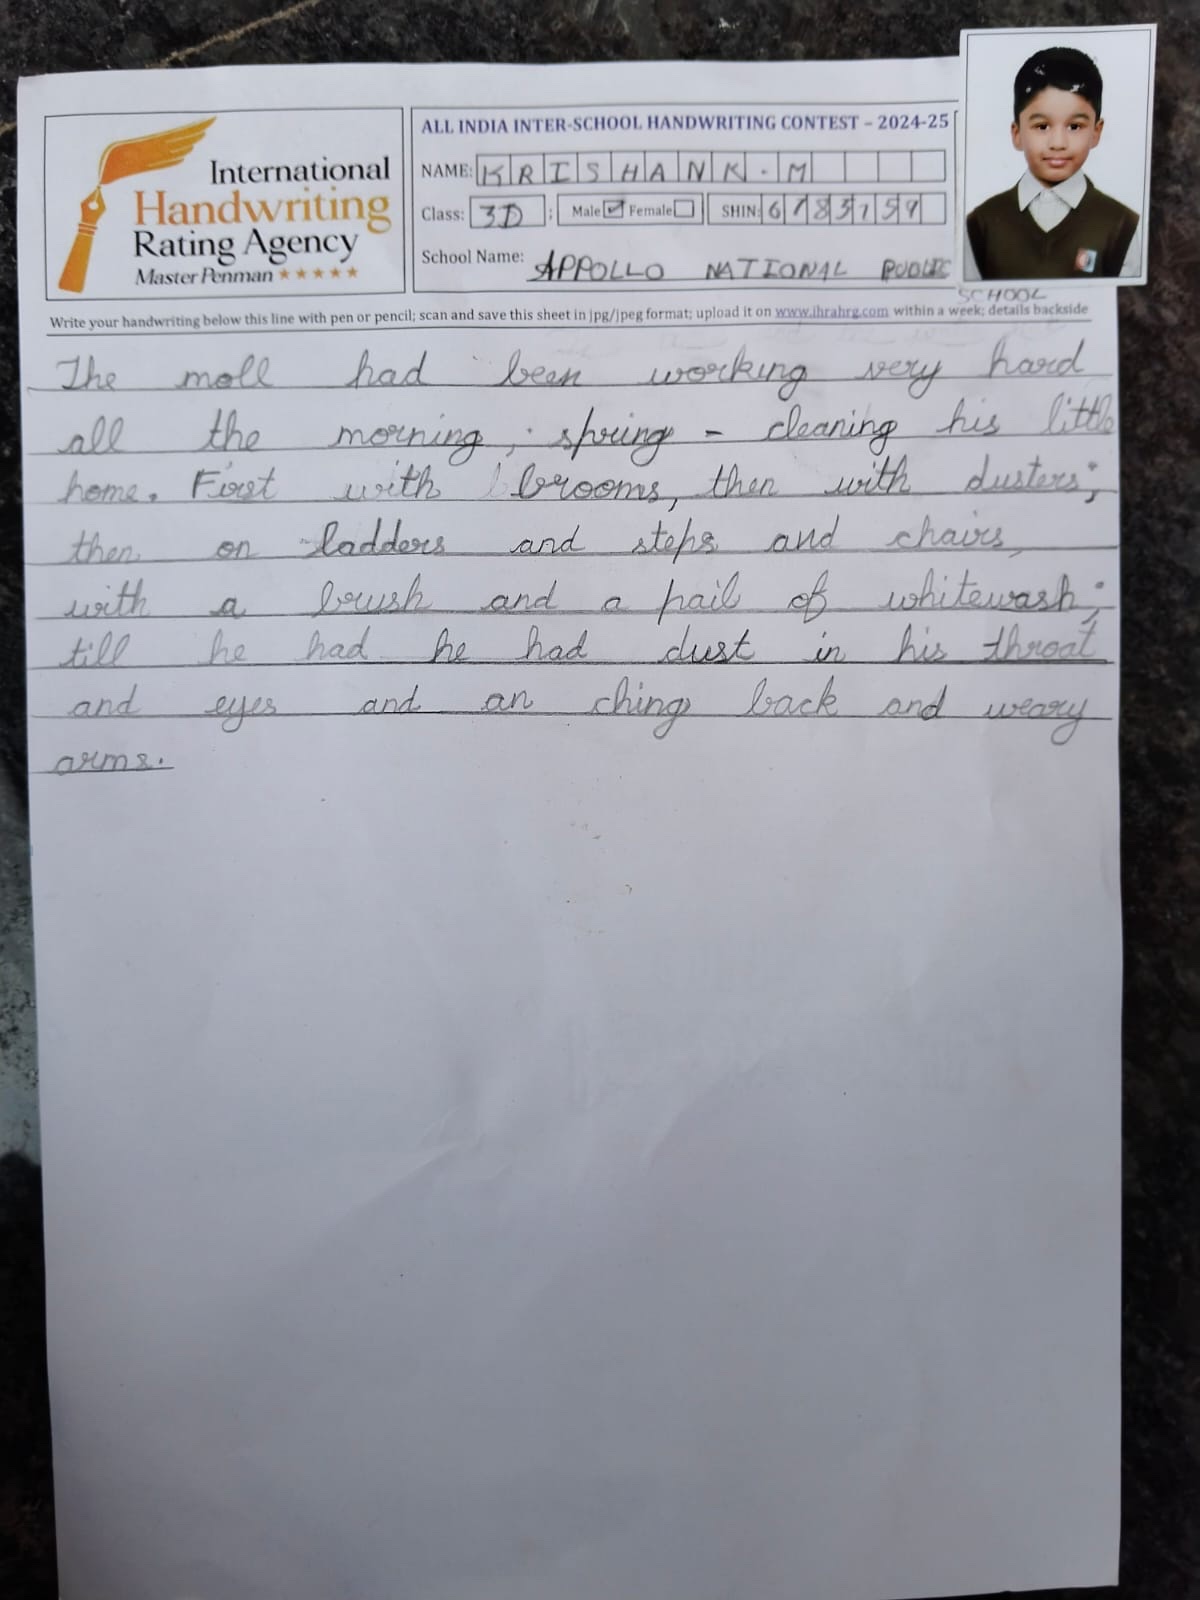 International
Handwriting
Rating Agency
Master Penman ★★★★★
ALL INDIA INTER-SCHOOL HANDWRITING CONTEST – 2024-25
NAME: KRISHANK.M
Class: 3D ; Male ☑ Female ☐ SHIN:
School Name: APPOLLO NATIONAL PUBLIC
SCHOOL
Write your handwriting below this line with pen or pencil; scan and save this sheet in jpg/jpeg format; upload it on www.ihrahrg.com within a week; details backside
The moll had been working very hard
all the morning, spring - cleaning his little
home. First with brooms, then with dusters;
then on ladders and steps and chairs,
with a brush and a pail of whitewash;
till he had he had dust in his throat
and eyes and an ching back and weary
arms.